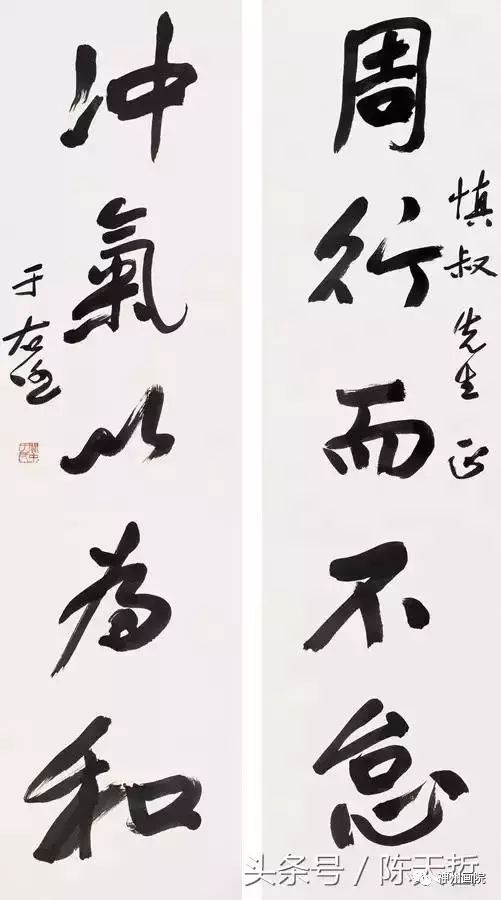 慎叔先生正
周行而不怠
冲氣以為和
于右任
头条号 / 陈天哲
神州画院